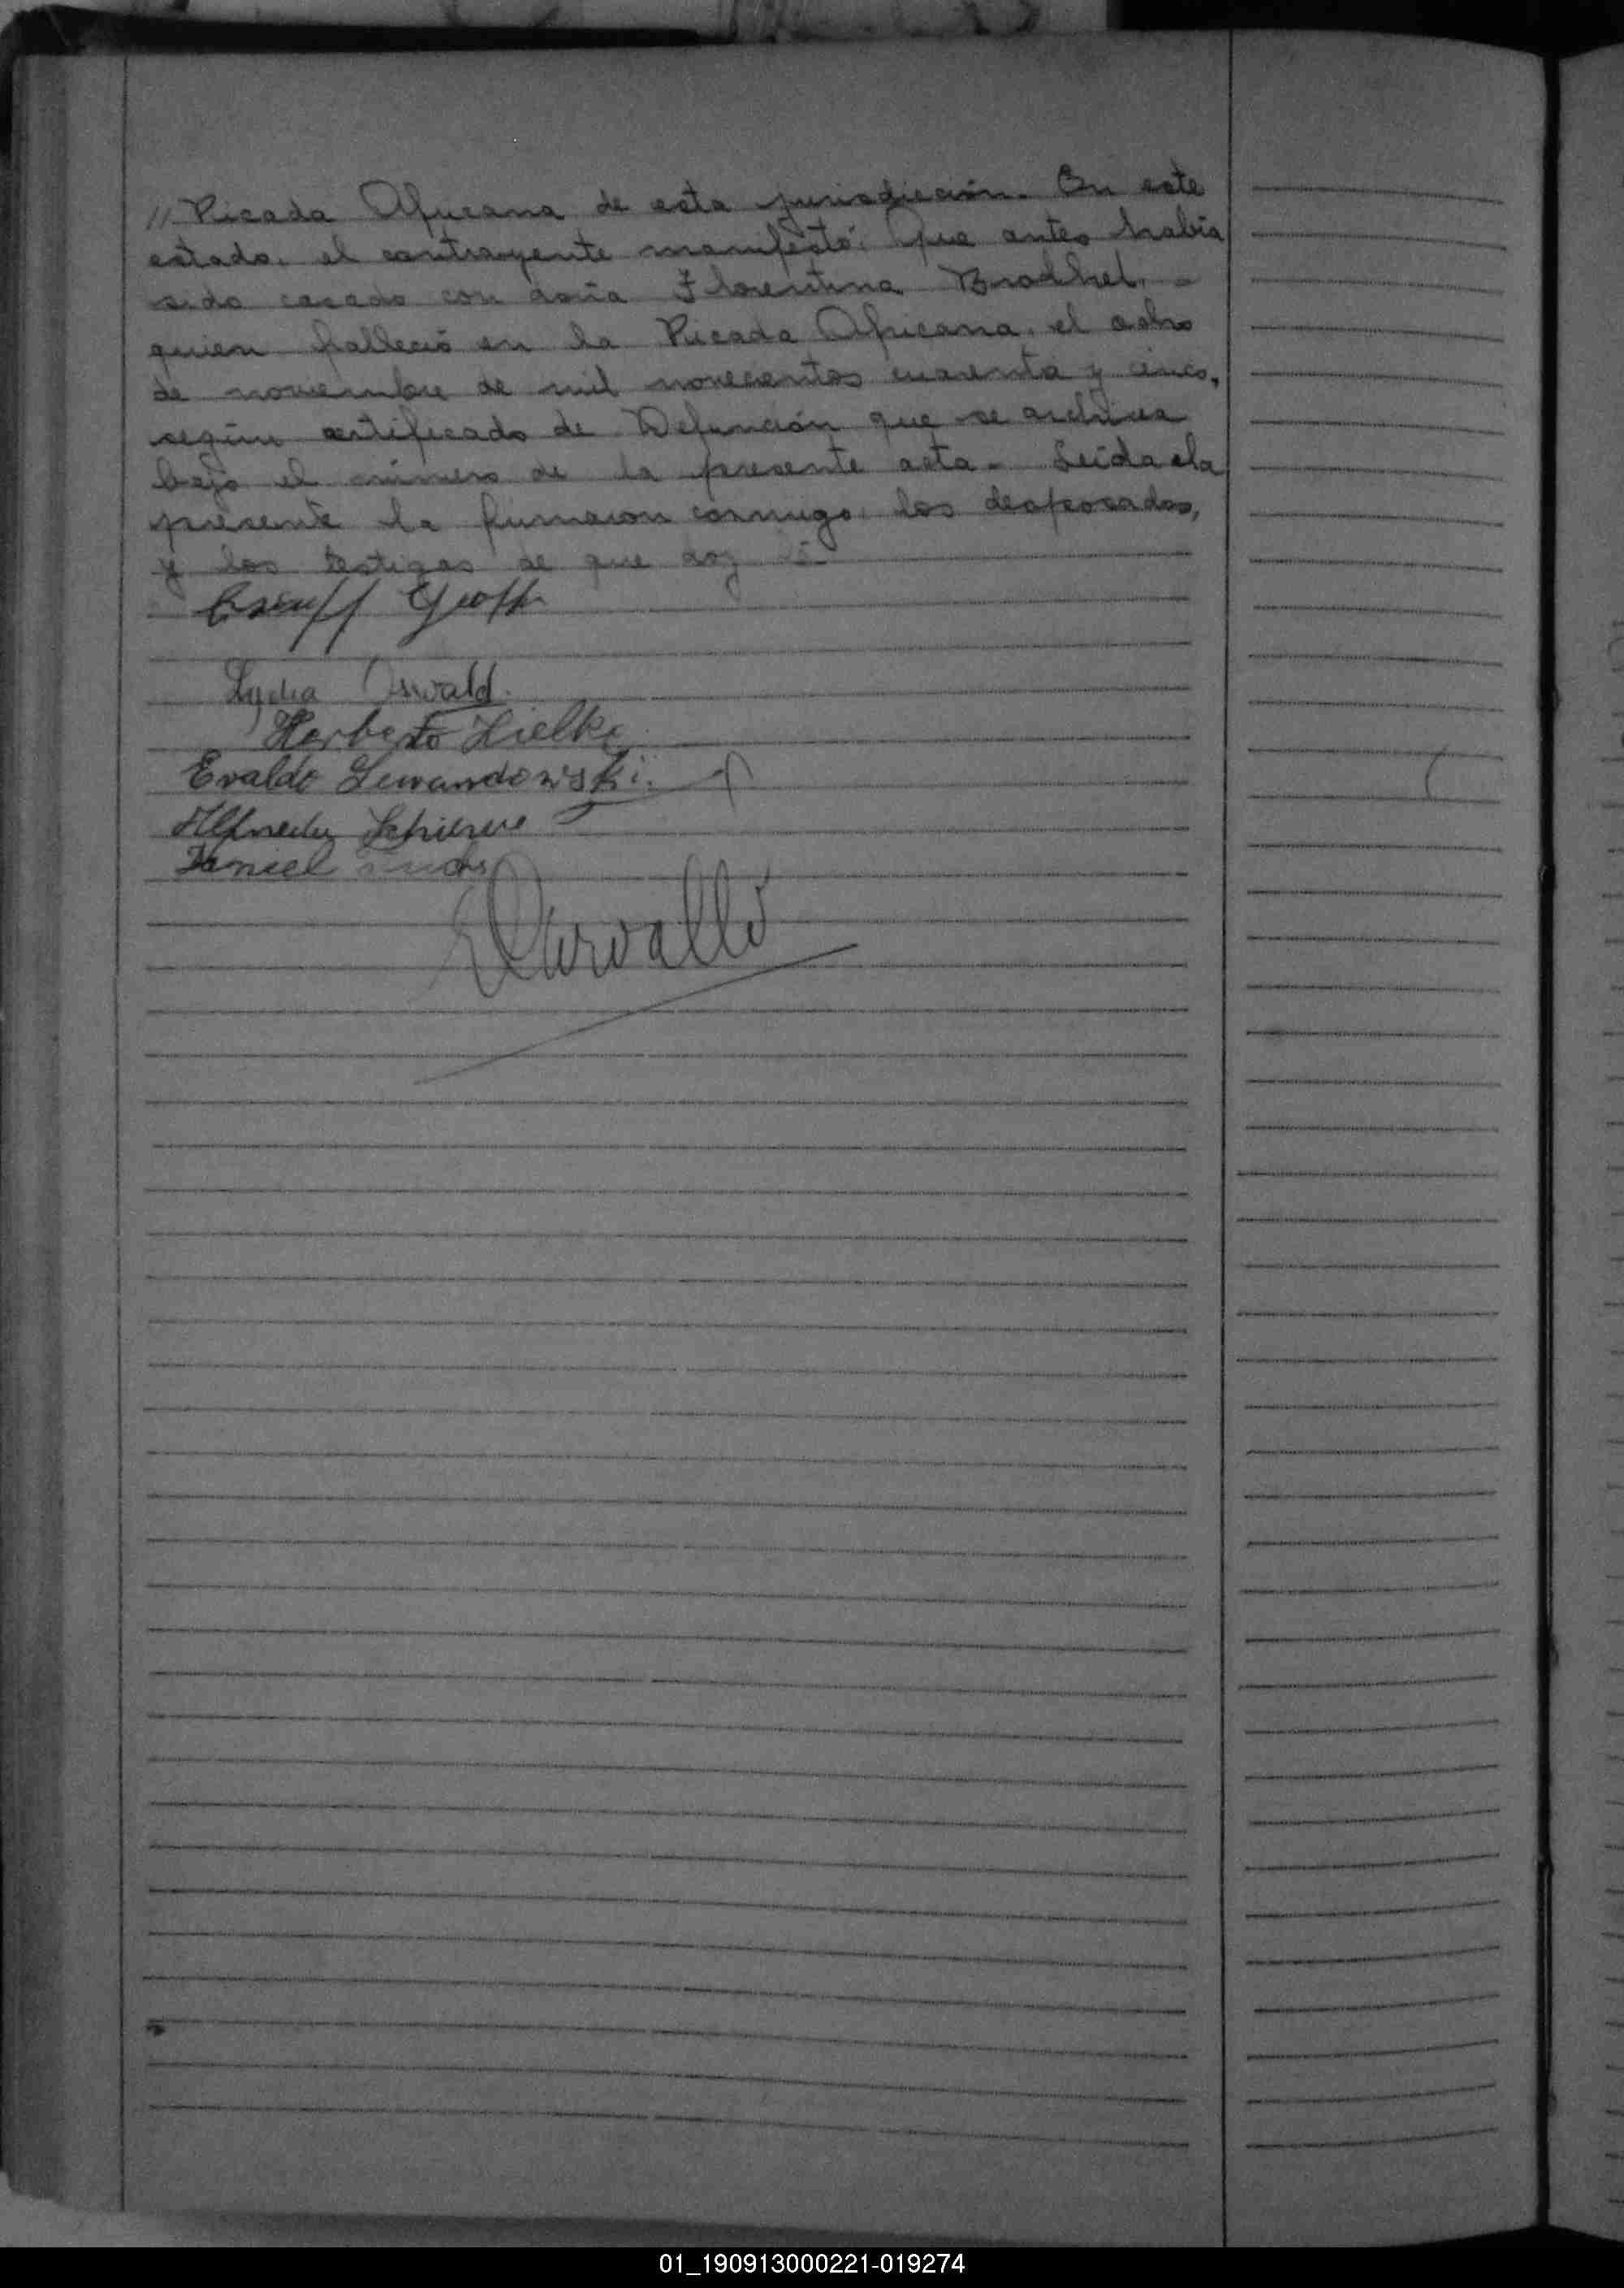 // Picada Africana de esta jurisdicción. En este
estado, el contrayente manifestó: Que antes habia
sido casado con doña Florentina
quien falleció en la Picada Africana, el ocho
de noviembre de mil novecientos cuarenta y cinco,
según certificado de Defunción que se archiva
bajo el número de la presente acta. Leida ela
presente la firmaron conmigo, los desposados,
y los testigos de que doy fé
Lydia Oswald.
Herberto Hielke
Evaldo Lewandowski.
Daniel
01_190913000221-019274